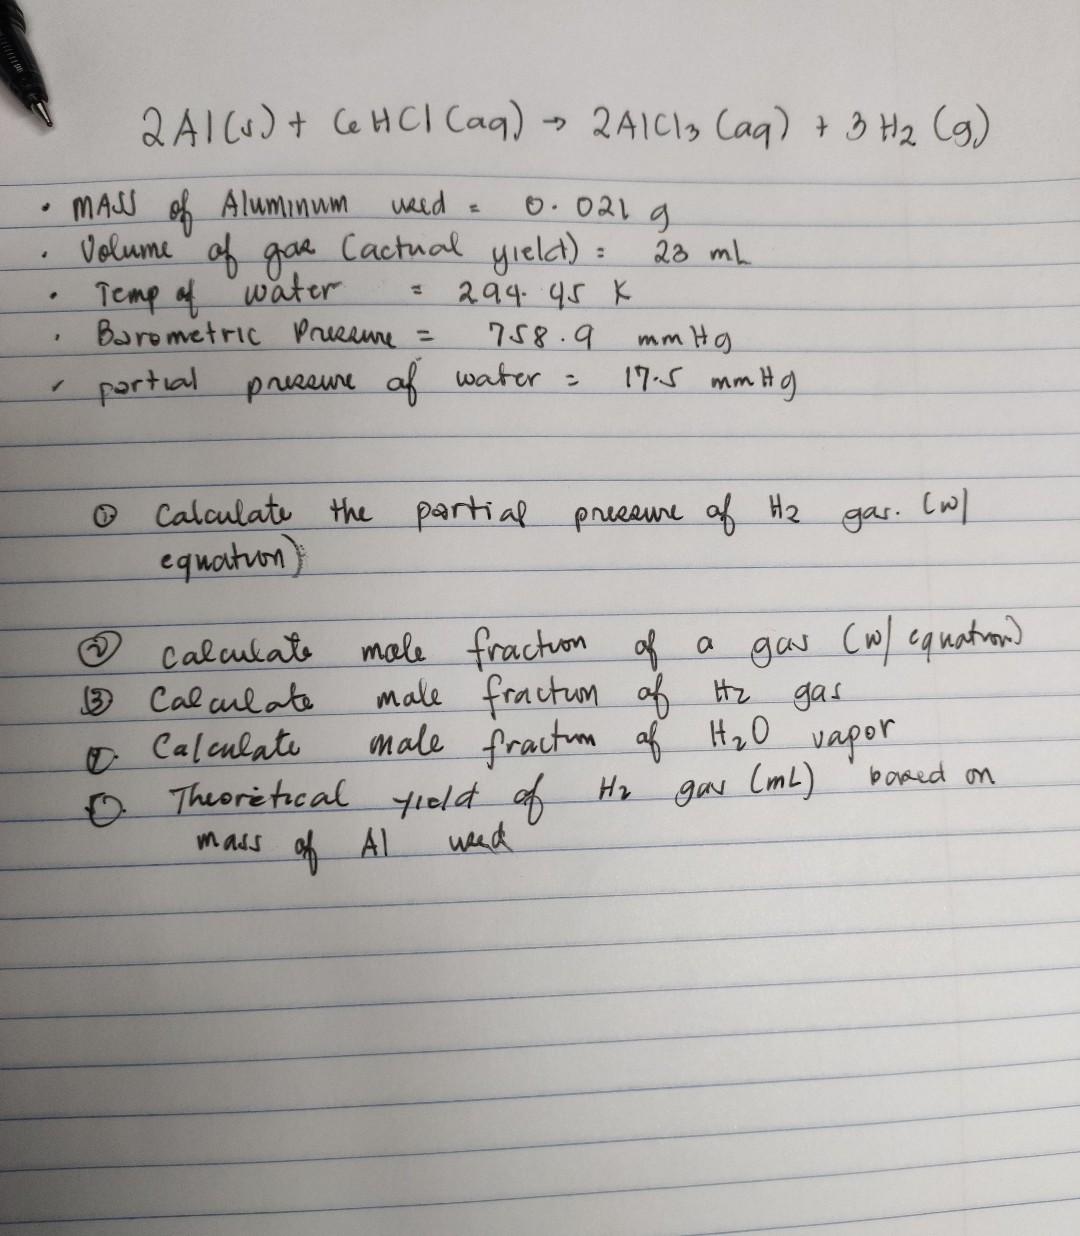 2Al(s) + 6HCl(aq) → 2AlCl3 (aq) + 3H2 (g)
• MASS of Aluminum used = 0.021 g
• Volume of gas (actual yield) = 23 mL
• Temp of water = 294.45 K
• Barometric Pressure = 758.9 mmHg
• partial pressure of water = 17.5 mmHg
① Calculate the partial pressure of H2 gas. (w/
equation)
② calculate mole fraction of a gas (w/ equation)
③ Calculate mole fraction of H2 gas
④. Calculate mole fraction of H2O vapor
⑤. Theoretical yield of H2 gas (mL) based on
mass of Al used